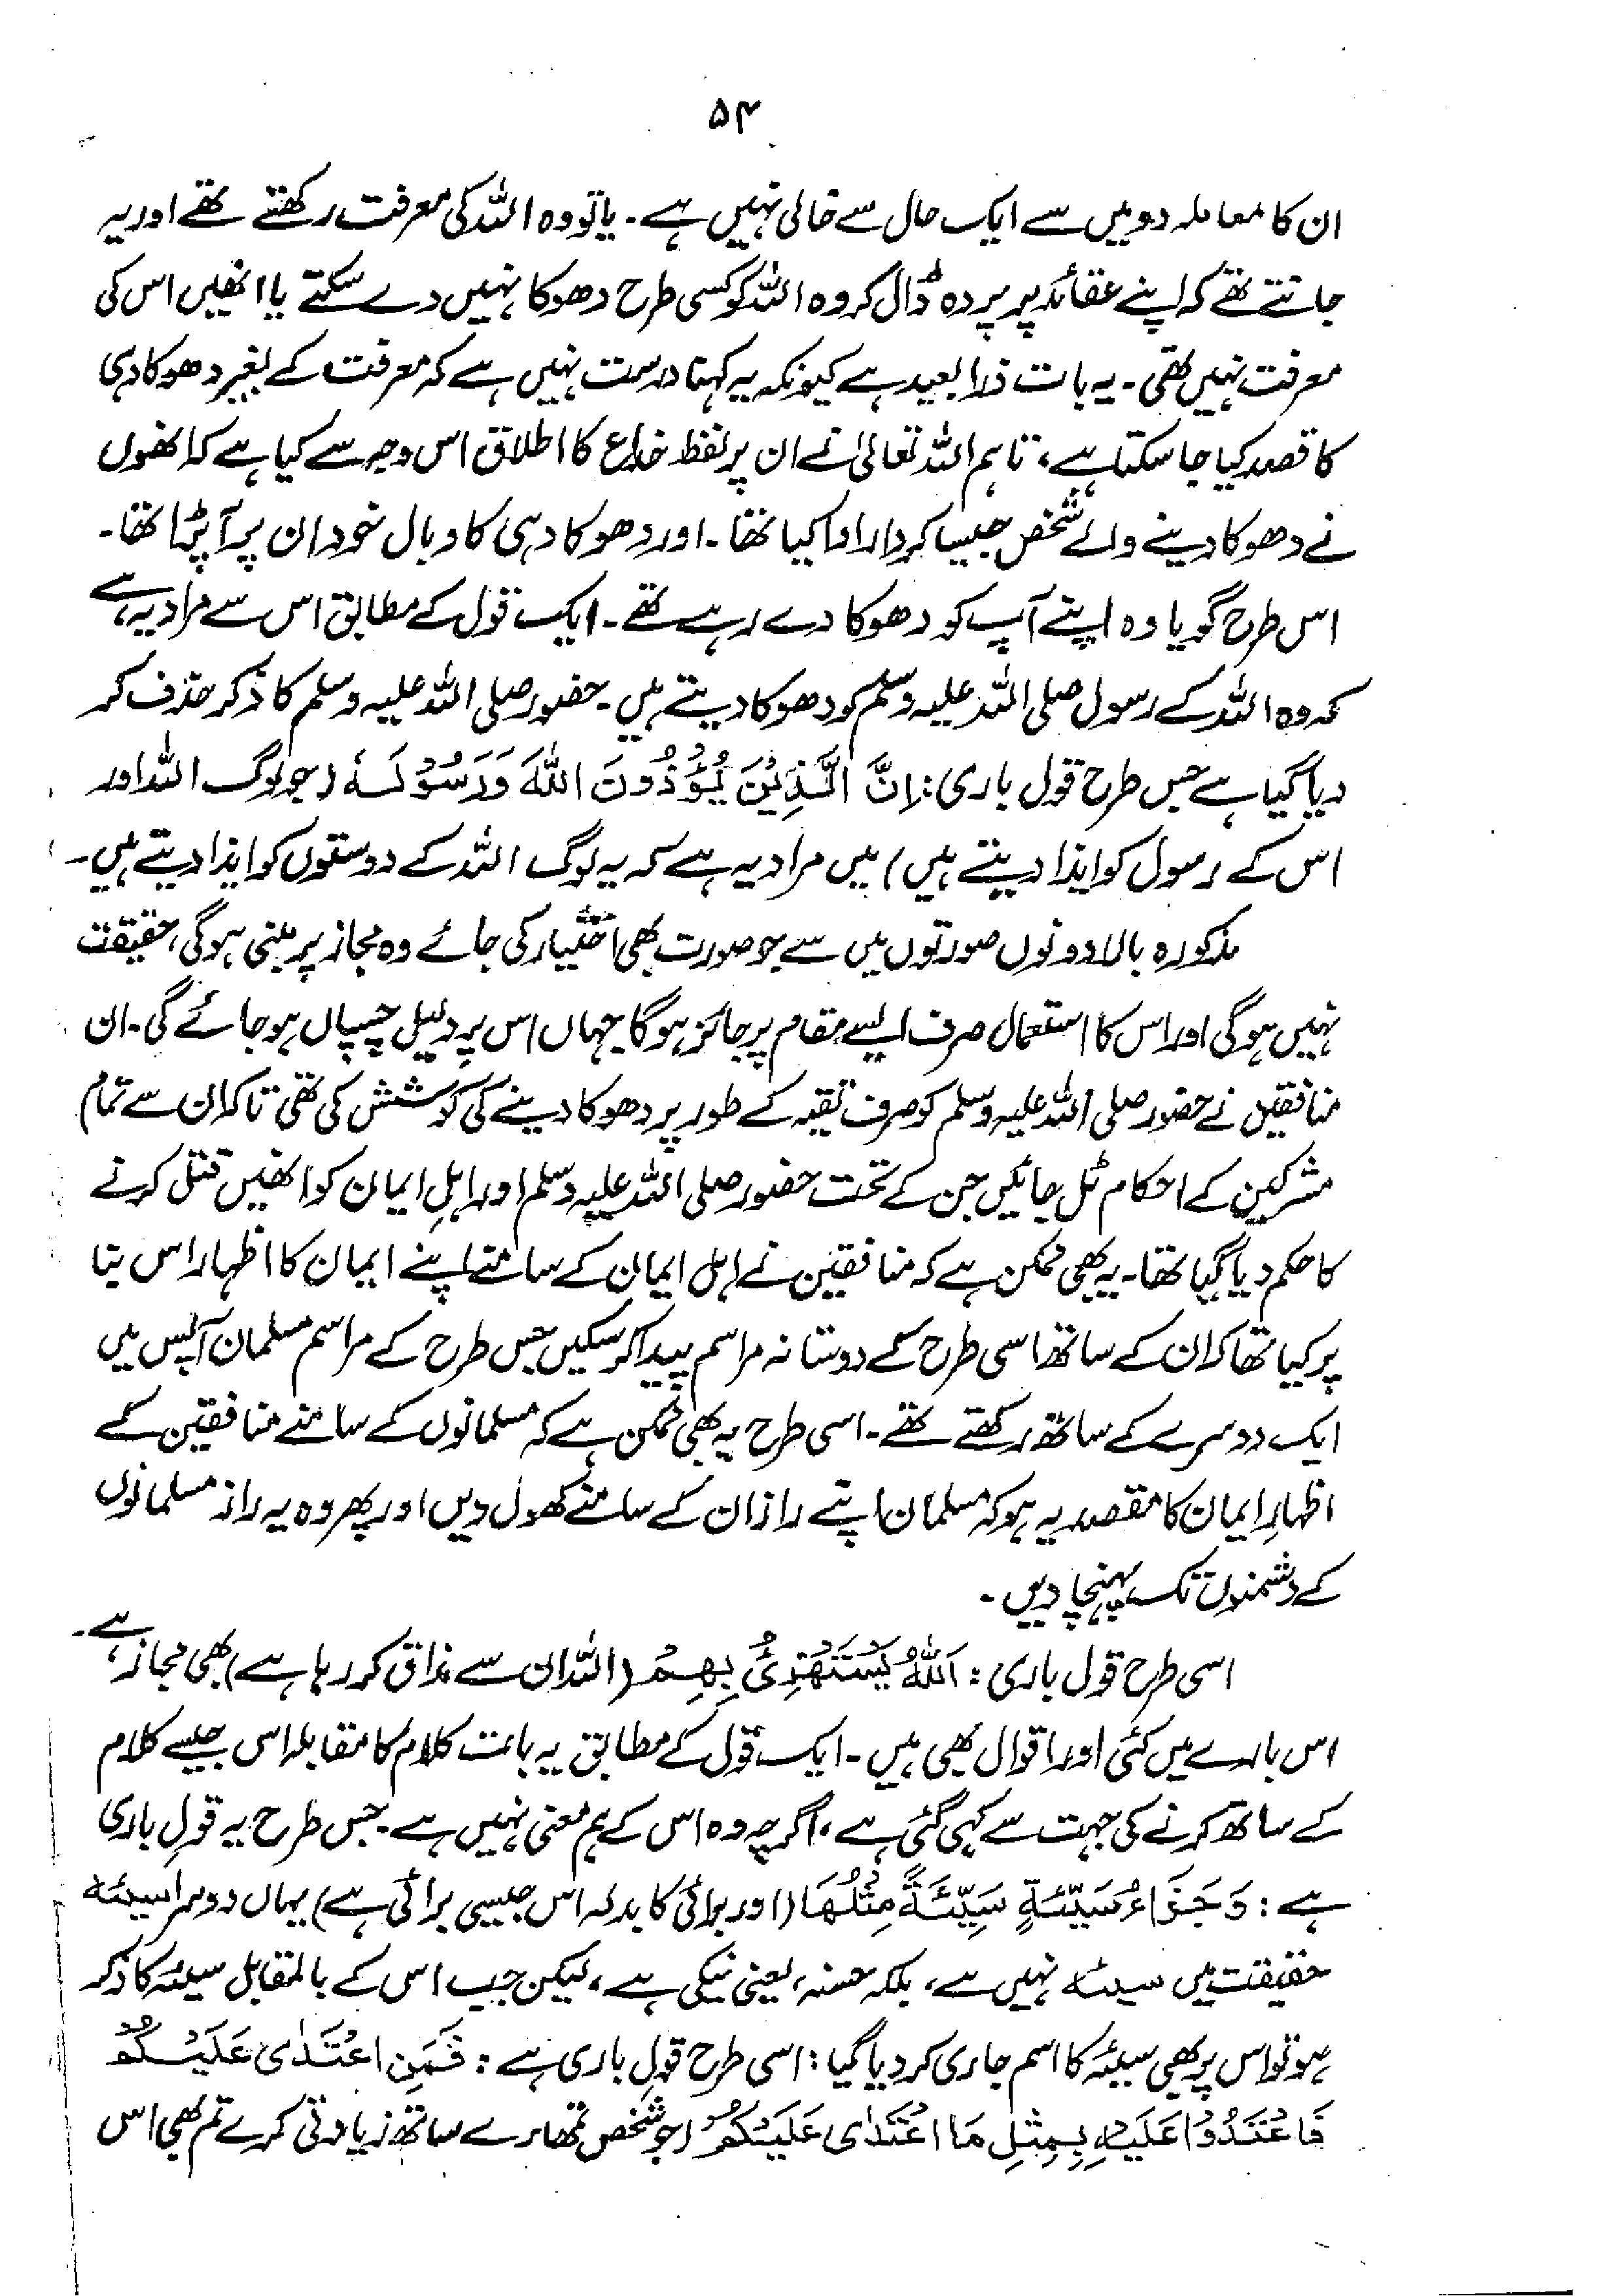 ۵۴
ان کا معاملہ دو میں سے ایک حال سے خالی نہیں ہے۔ یا تو وہ اللہ کی معرفت رکھتے تھے اور یہ
جانتے تھے کہ اپنے عقائد پر پردہ ڈال کر وہ اللہ کو کسی طرح دھوکا نہیں دے سکتے یا انھیں اس کی
معرفت نہیں تھی۔ یہ بات ذرا بعید ہے کیونکہ یہ کہنا درست نہیں ہے کہ معرفت کے بغیر دھوکا دہی
کا قصد کیا جا سکتا ہے، تاہم اللہ تعالیٰ نے ان پر لفظ خداع کا اطلاق اس وجہ سے کیا ہے کہ انھوں
نے دھوکا دینے والے شخص جیسا کردار ادا کیا تھا۔ اور دھوکا دہی کا وبال خود ان پر آ پڑا تھا۔
اس طرح گویا وہ اپنے آپ کو دھوکا دے رہے تھے۔ ایک قول کے مطابق اس سے مراد یہ ہے
کہ وہ اللہ کے رسول صلی اللہ علیہ وسلم کو دھوکا دیتے ہیں۔ حضور صلی اللہ علیہ وسلم کا ذکر حذف کر
دیا گیا ہے جس طرح قول باری: اِنَّ الَّذِیْنَ یُؤْذُوْنَ اللّٰہَ وَرَسُوْلَہٗ (جو لوگ اللہ اور
اس کے رسول کو ایذا دیتے ہیں) میں مراد یہ ہے کہ یہ لوگ اللہ کے دوستوں کو ایذا دیتے ہیں۔
مذکورہ بالا دونوں صورتوں میں سے جو صورت بھی اختیار کی جائے وہ مجاز پر مبنی ہوگی، حقیقت
نہیں ہوگی اور اس کا استعمال صرف ایسے مقام پر جائز ہوگا جہاں اس پر دلیل چسپاں ہو جائے گی۔ ان
منافقین نے حضور صلی اللہ علیہ وسلم کو صرف تقیہ کے طور پر دھوکا دینے کی کوشش کی تھی تاکہ ان سے تمام
مشرکین کے احکام ٹل جائیں جن کے تحت حضور صلی اللہ علیہ وسلم اور اہلِ ایمان کو انھیں قتل کرنے
کا حکم دیا گیا تھا۔ یہ بھی ممکن ہے کہ منافقین نے اہل ایمان کے سامنے اپنے ایمان کا اظہار اس بنا
پر کیا تھا کہ ان کے ساتھ اسی طرح کے دوستانہ مراسم پیدا کر سکیں جس طرح کے مراسم مسلمان آپس میں
ایک دوسرے کے ساتھ رکھتے تھے۔ اسی طرح یہ بھی ممکن ہے کہ مسلمانوں کے سامنے منافقین کے
اظہارِ ایمان کا مقصد یہ ہو کہ مسلمان اپنے راز ان کے سامنے کھول دیں اور پھر وہ یہ راز مسلمانوں
کے دشمنوں تک پہنچا دیں۔
اسی طرح قول باری: اَللّٰہُ یَسْتَھْزِئُ بِھِمْ (اللہ ان سے مذاق کر رہا ہے) بھی مجاز ہے۔
اس بارے میں کئی اور اقوال بھی ہیں۔ ایک قول کے مطابق یہ بات کلام کا مقابلہ اس جیسے کلام
کے ساتھ کرنے کی جہت سے کہی گئی ہے، اگرچہ وہ اس کے ہم معنی نہیں ہے۔ جس طرح یہ قولِ باری
ہے: وَجَزَاءُ سَیِّئَۃٍ سَیِّئَۃٌ مِثْلُھَا (اور برائی کا بدلہ اس جیسی برائی ہے) یہاں دوسرا سیئہ
حقیقت میں سیئہ نہیں ہے، بلکہ حسنہ، یعنی نیکی ہے، لیکن جب اس کے بالمقابل سیئہ کا ذکر
ہو تو اس پر بھی سیئہ کا اسم جاری کر دیا گیا: اسی طرح قولِ باری ہے: فَمَنِ اعْتَدٰی عَلَیْکُمْ
فَاعْتَدُوْا عَلَیْہِ بِمِثْلِ مَا اعْتَدٰی عَلَیْکُمْ (جو شخص تمھارے ساتھ زیادتی کرے تم بھی اس